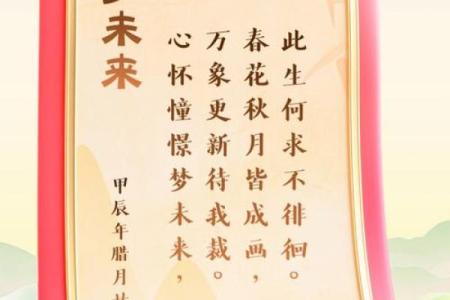 未来
心怀憧憬梦未来，
万象更新待我裁。
春花秋月皆成画，
此生何求不徘徊。
甲辰年腊月